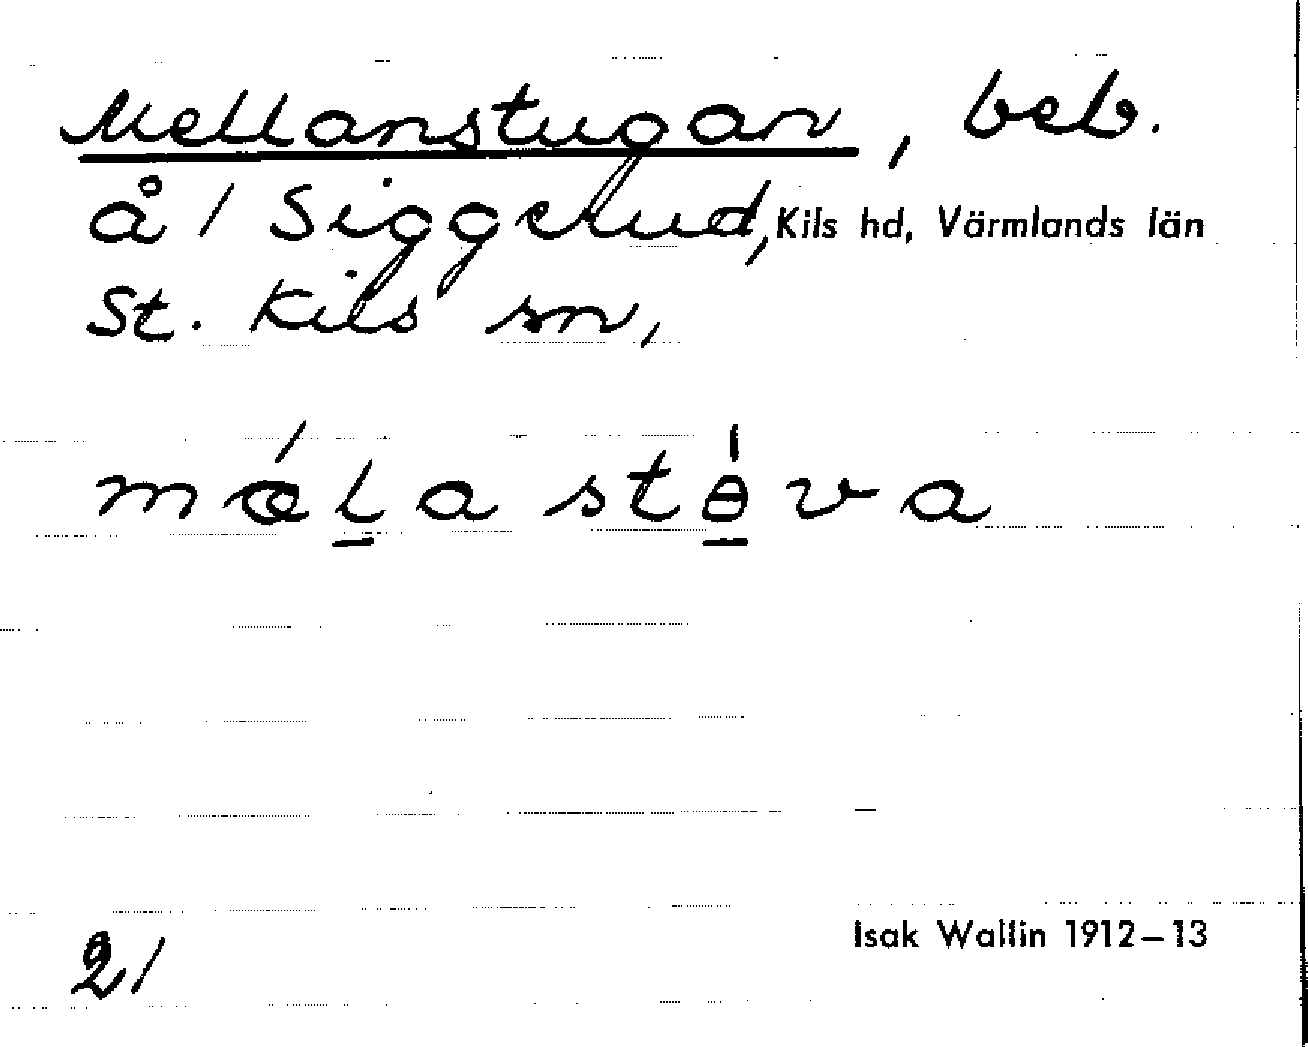 Mellanstugan, beb.
å / Siggerud, Kils hd, Värmlands län
St. Kils sn,
mǽl̠a stɵ̠́va
Isak Wallin 1912–13
21